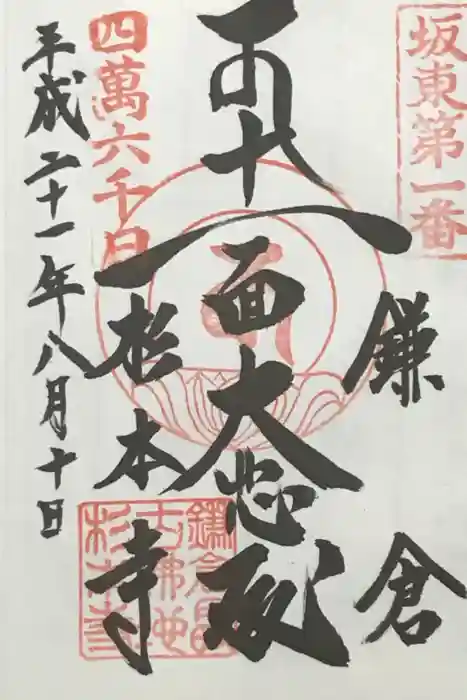 坂東第一番
鎌倉
十一面大悲殿
杉本寺
四萬六千日
平成二十一年八月十日
鎌倉
古佛地
杉本寺